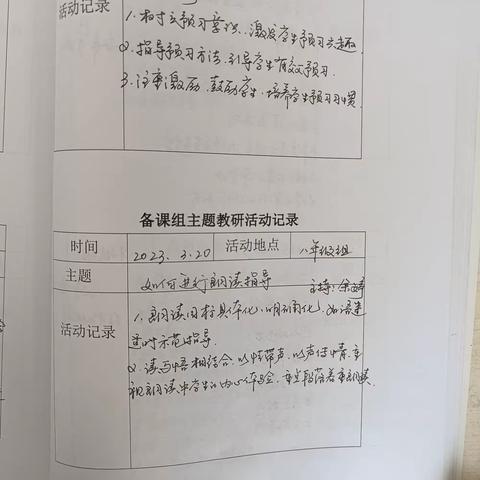 活动记录
1.树立预习意识、激发学生预习兴趣
2.指导预习方法、引导学生有效预习.
3.注重激励、鼓励学生、培养学生预习习惯.
备课组主题教研活动记录
时间 2023.3.20 活动地点 八年级组
主题 如何进行朗读指导 主持:余
活动记录
1.朗读目标具体化、明确化,如语速
适时示范指导.
2.读与悟相结合.以情带声、以声传情.重
视朗读中学生的内心体验.